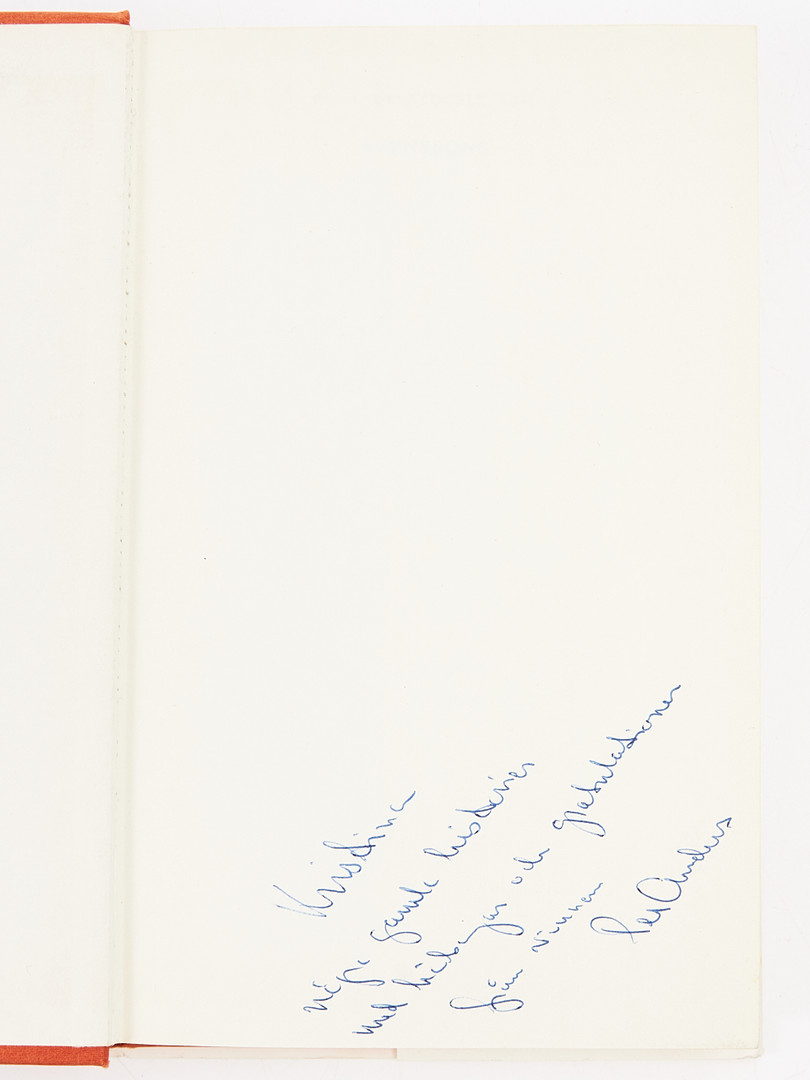 Kristina
några gamla historier
med hälsningar och gratulationer
från vännen
Per Anders